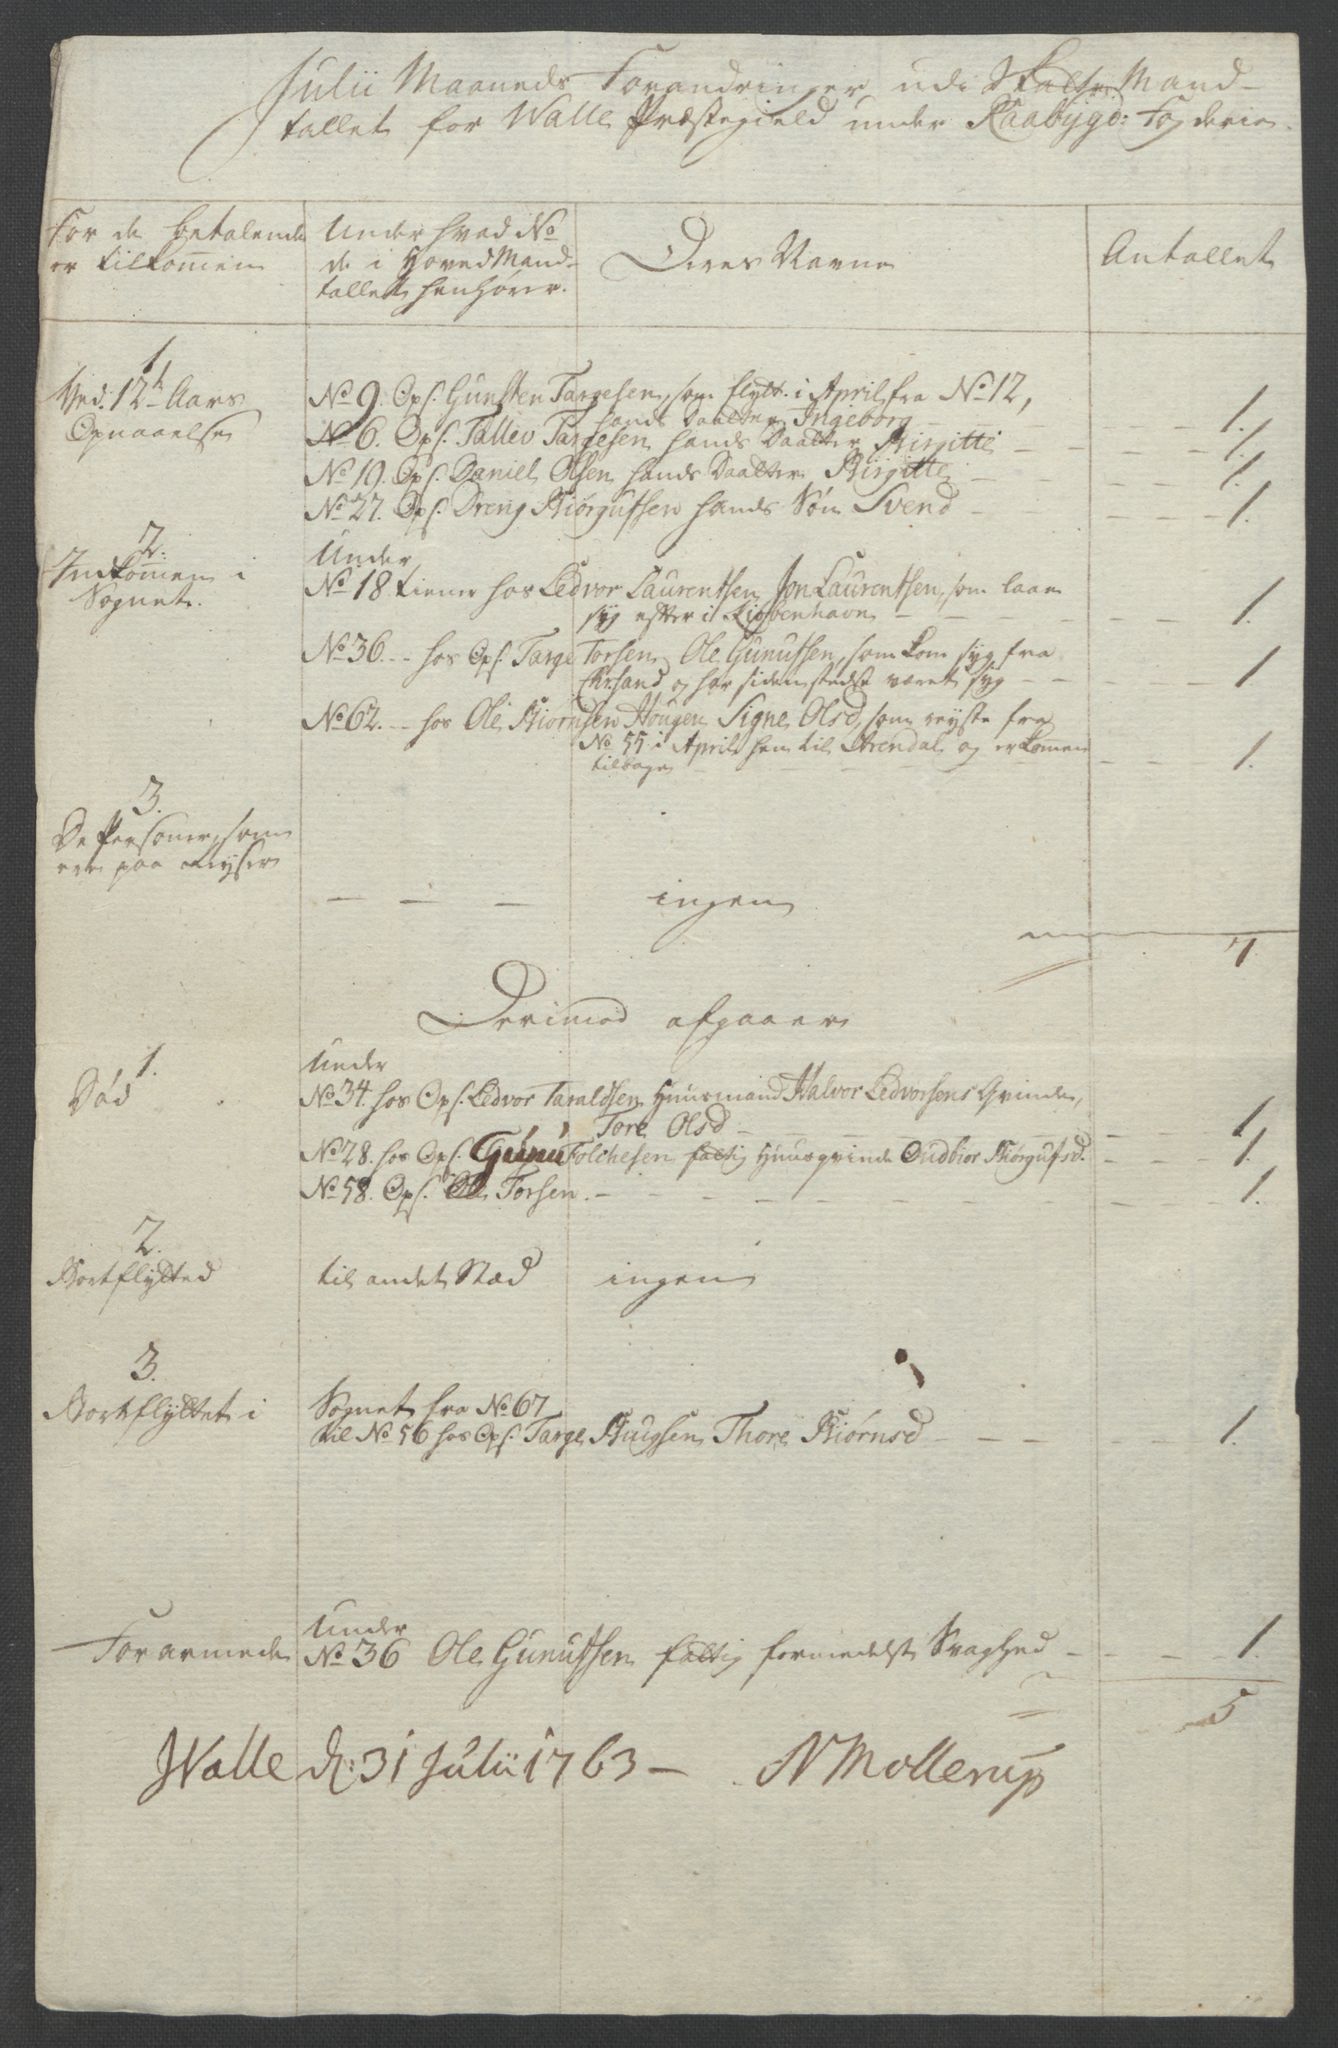 Julii Maaneds Forandringer udi Skatte Mand-
tallet for Walle Præstegield under Raabygd: Fogderie.
For de betalende
er tilkom̄en
Under hvad No
de i Hoved Mand-
tallet henhører.
Deres Navne
Antallet
1.
Ved 12te Aars
Opnaaelse
No 9. Ops. Gunsten Targesen, som flytt. i April fra No 12,
hands Daatter Ingeborg - - - 1.
No 6. Ops. Tallev Targesen hands Daatter Birgitte - - - 1.
No 19. Ops. Daniel Olsen hands Daatter Birgitte - - - 1.
No 27. Ops. Dreng Biørgufsen hands Søn Svend - - - 1.
2.
Indkom̄en i
Sognet.
Under
No 18 tiener hos Ledvor Laurentsen, Jon Laurentsen, som laae
syg efter i Kiøbenhavn - - - 1.
No 36. - - hos Ops. Targe Torsen, Ole Gunufsen, som kom syg fra
Chrsand og har siden stedse været syg - - - 1
No 62. - - hos Ole Biørnsen Hougen Signe Olsd, som reyste fra
No 55 i April hen til Arendal og er kom̄en
tilbage - - - 1.
3.
De Personer, som
ere paa Reyser
- - - ingen
7.
Derimod afgaaer
1.
Død
Under
No 34. hos Ops. Ledvor Taraldsen Huusmand Halvor Ledvorsens Qvinde,
Tore Olsd - - - 1.
No 28. hos Ops. Gunu Folchesen fattig Huusqvinde Gudbior Biørgufsd. - - 1.
No 58. Ops. Ole Torsen. - - - 1.
2.
Bortflytted
til andet Stæd ingen
3.
Bortflyttet i
Sognet fra No 67
til No 56 hos Ops. Targe Huigsen Thore Biørnsd - - - 1.
Forarmede
Under
No 36 Ole Gunufsen fattig formedelst Svaghed - - - 1.
5
Walle d: 31 Julii 1763 - N Mollerup